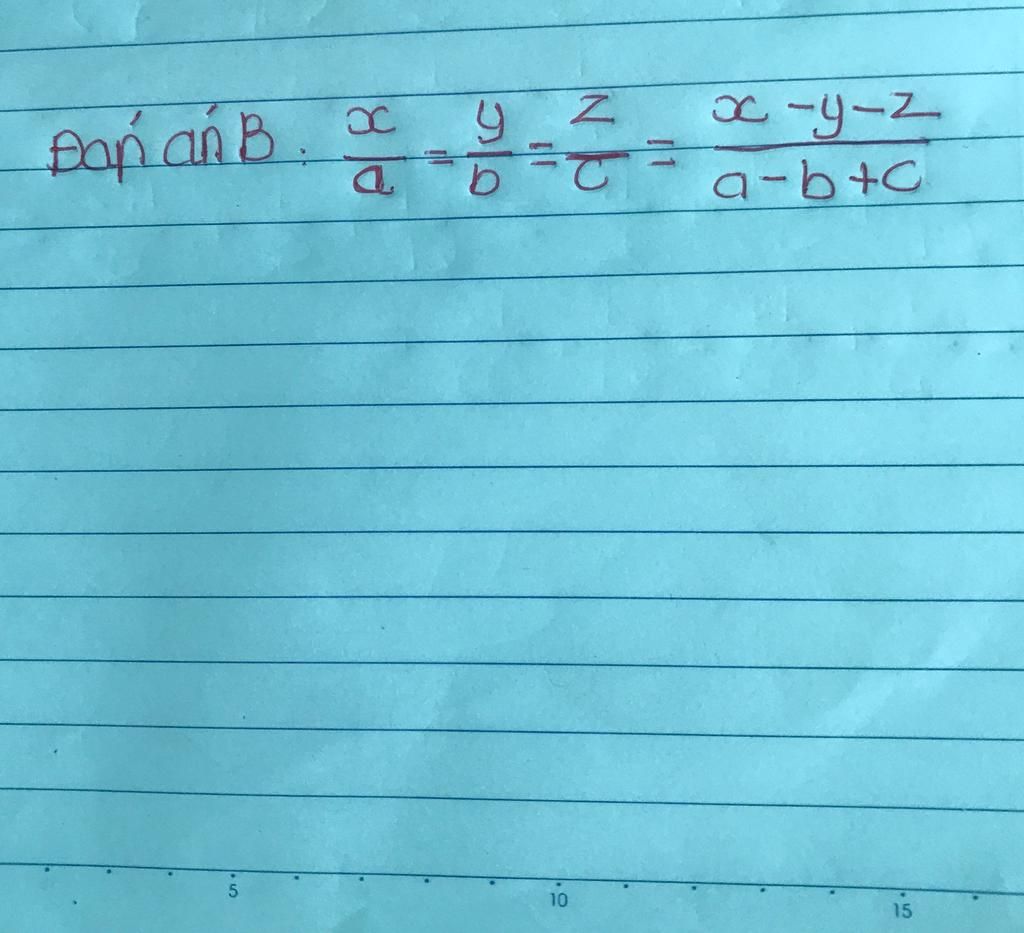 Đáp án B: x/a = y/b = z/c = x-y-z/a-b+c
5 10 15